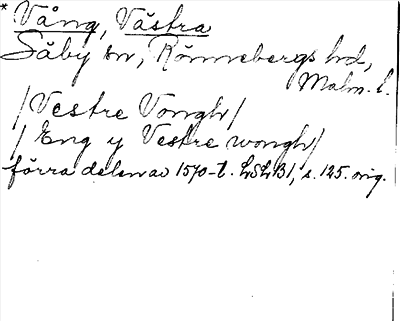 * Vång, Västra
Säby sn, Rönnebergs hd,
Malm. l.
/Vestre Vongh/
/Eng y Vestre wongh/
förra delen av 1570-t. LSLB1, s. 125. orig.